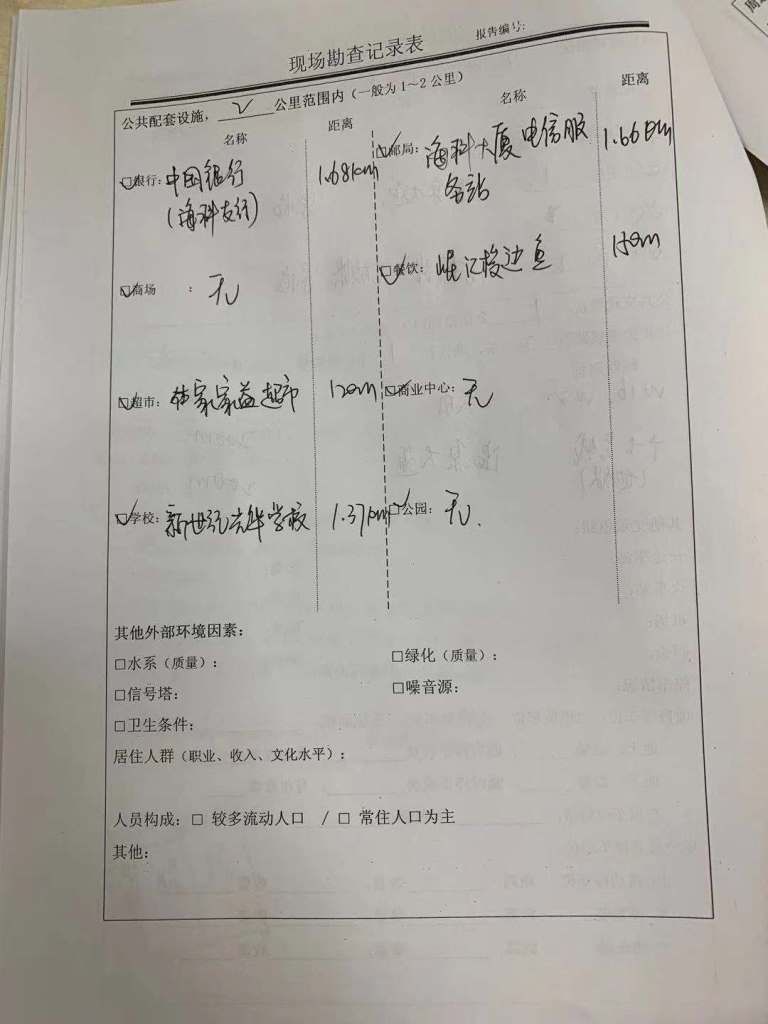 现场勘查记录表
报告编号:
公共配套设施, 2 公里范围内(一般为1~2公里)
名称 距离 名称 距离
☑银行: 中国银行 1.68km ☑邮局: 海科大厦电信服 1.66km
(海科支行) 务站
☑餐饮: 边鱼
☑商场 : 无
☑超市: 家家益超市 120m ☑商业中心: 无
☑学校: 新世纪 学校 1.37km ☑公园: 无.
其他外部环境因素:
□水系(质量): □绿化(质量):
□信号塔: □噪音源:
□卫生条件:
居住人群(职业、收入、文化水平):
人员构成: □ 较多流动人口 / □ 常住人口为主
其他: